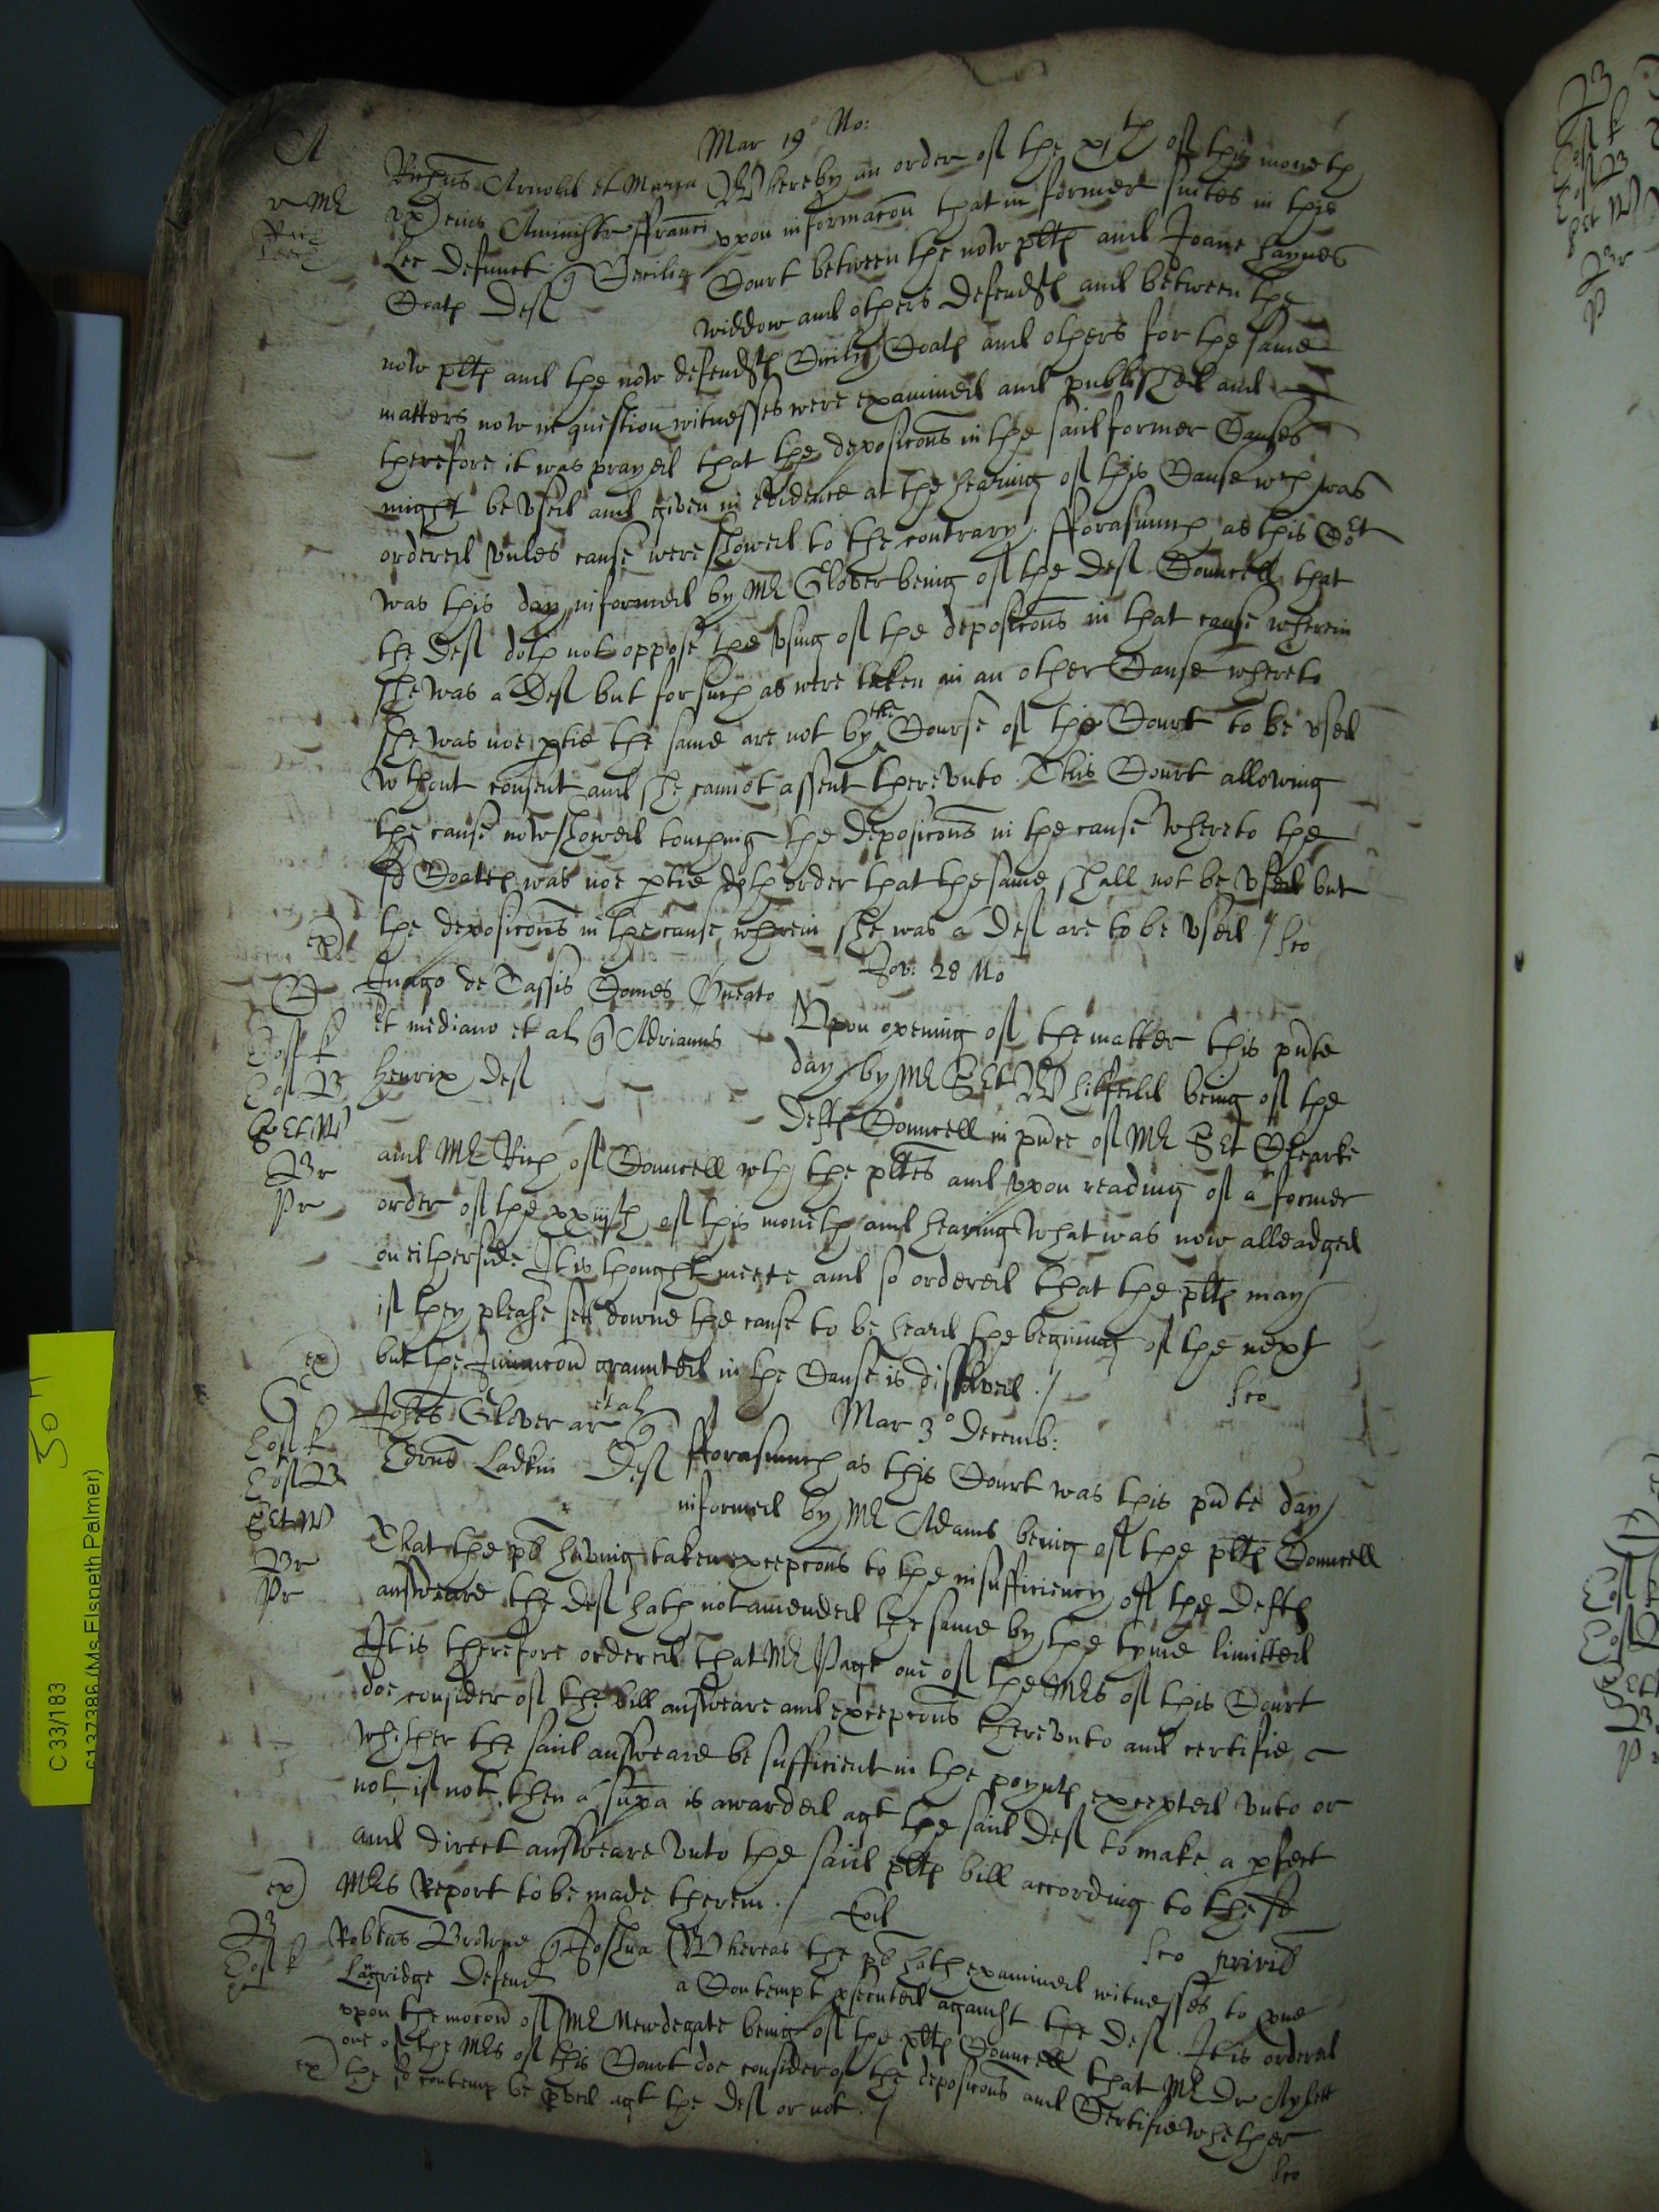 Mar 19° No:
A
Richūs Arnold et Maria Whereby an order of the xjth of this moneth
ux eius Aministr ffranci upon informacōn that in former suites in this
Lee defunct q Cecilia Court between the now pltf and Joane Haynes
Coath Def widdow and others defendts and between the
now pltf and the now defendt Cicily Coath and others for the same
matters now in question witnesses were examined and published and
therefore it was prayed that the deposicōns in the said former Causes
might be used and given in evidence at the hearing of this Cause wch was
ordered unles cause were showed to the contrary. fforasmuch as this Cort
was this day informed by Mr Glover being of the Def Councell that
the Def doth not oppose the using of the deposicōns in that cause wherein
she was a Def but for such as were taken in an other Cause whereto
she was noe ptie the same are not by the Course of the Court to be used
wthout consent and she cannot assent thereunto. This Court allowing
the cause now showed touching the deposicōns in the cause whereto the
sd Coath was noe ptie doth order that the same shall not be used but
the deposicōns in the cause wherein she was a Def are to be used ./
ex)
Jov: 28 No
Juago de Tassis Comes
et mediano et al q Adrianus Upon opening of the matter this pn̄te
Henrix Def day by Mr Sct Whitfeild being of the
Defts Councell in pn̄ce of Mr Sct Clearke
and Mr Rich of Councell wth the pltes and upon reading of a former
order of the xxiijth of this moneth and hearing what was now alleadged
on either side It is thought meete and so ordered that the pltf may
if they please sett downe the cause to be heard the beginning of the next
but the Iniuncōn graunted in the Cause is dissolved ./
ex)
G
Mar 3° Decemb:
Johēs Glover ar et al q
Edrūs Ladkin Def fforasmuch as this Court was this pn̄te day
informed by Mr Adams being of the pltf Councell
That the pl having taken excepcōns to the insufficiency of the Defts
answeare the Def hath not amended the same by the tyme limitted
It is therefore ordered that Mr Page one of the Mrs of this Court
doe consider of the bill answeare and excepcōns thereunto and certifie
whether the said answeare be sufficient in the poynts excepted unto or
not, if not, then a supa is awarded agt the said Def to make a pfect
and direct answeare unto the said pltf bill according to the sd
Mrs Report to be made therein ./
ex)
B
Eod
Robtūs Browne q Joshua Whereas the pl hath examined witnesses to pve
Langridge Defend a Contempt psecuted against the Def. It is ordered
upon the mocōn of Mr Newdegate being of the pltf Councell that Mr Dr Aylett
one of the Mrs of this Court doe consider of the deposicōns and Certifie whether
ex) the sd contemp be pved agt the Def or not ./
C 33/183
(Ms Elspeth Palmer)